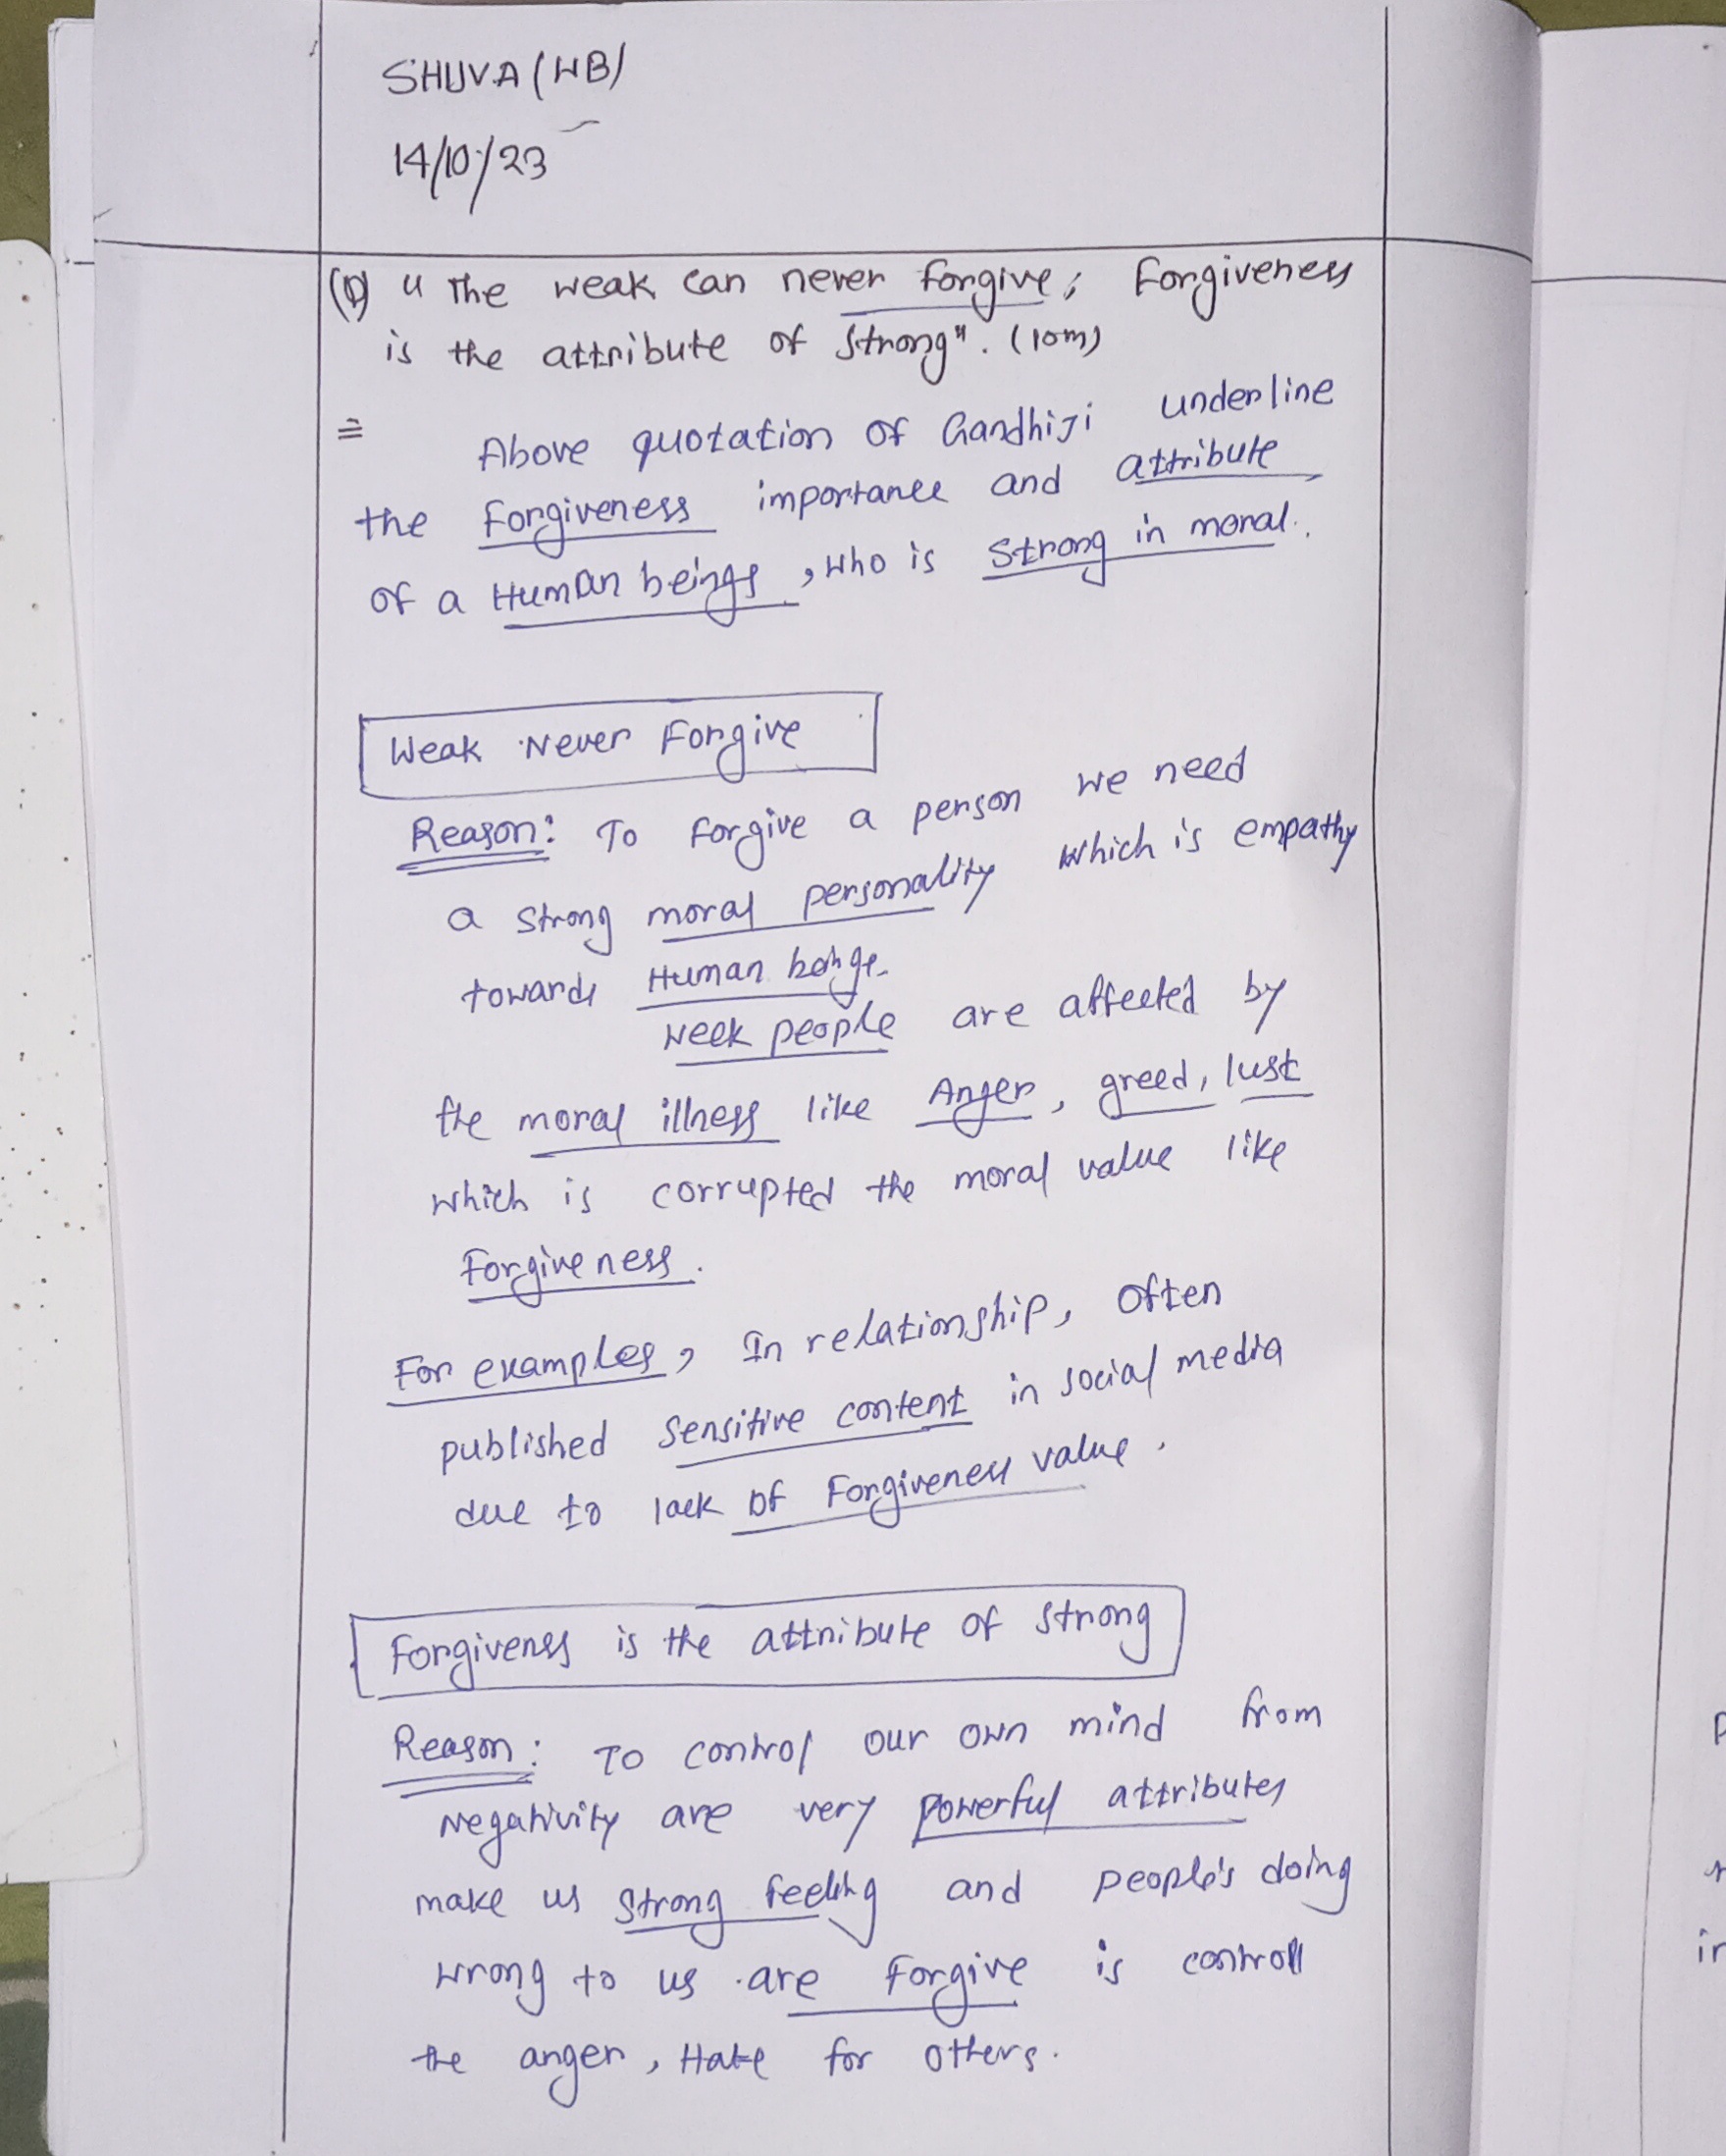 SHUVA (WB)
14/10/23
(Q) "The weak can never forgive; Forgiveness
is the attribute of strong". (10m)
= Above quotation of Gandhiji underline
the Forgiveness importance and attribute
of a Human beings, who is strong in moral.
Weak Never Forgive
Reason: To forgive a person we need
a strong moral personality which is empathy
towards Human beings.
Week people are affected by
the moral illness like Anger, greed, lust
which is corrupted the moral value like
Forgiveness.
For examples, In relationship, often
published sensitive content in social media
due to lack of Forgiveness value.
Forgivenss is the attribute of strong
Reason: To control our own mind from
Negativity are very powerful attributes
make us strong feeling and people's doing
wrong to us are Forgive is controll
the anger, Hate for others.
P
in